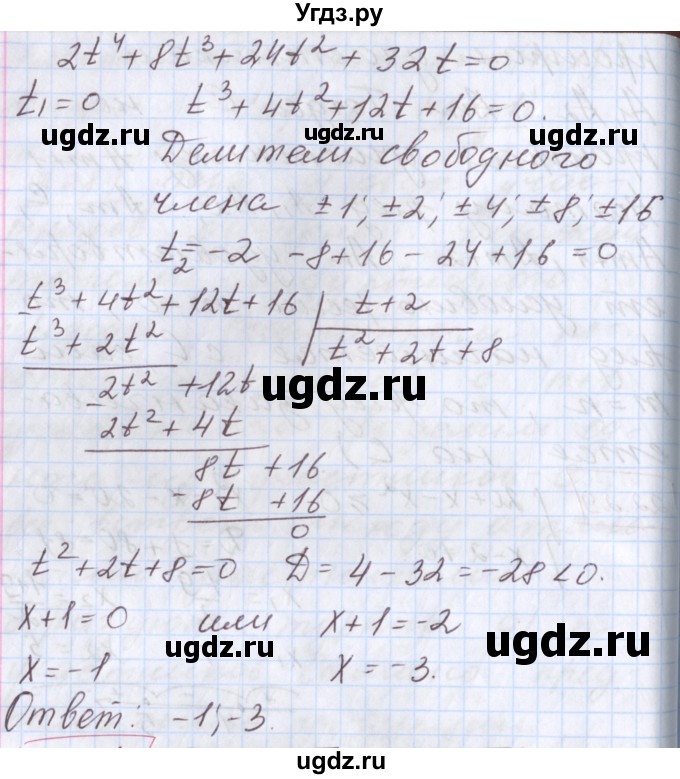 Угдз.ру
2t⁴+8t³+24t²+32t=0
t₁=0 t³+4t²+12t+16=0.
ugdz.ru ugdz.ru ugdz.ru
Делители свободного
члена ±1; ±2; ±4; ±8; ±16
t₂=-2 -8+16-24+16=0
t³+4t²+12t+16 | t+2
t³+2t² t²+2t+8
ugdz.ru ugdz.ru
2t²+12t
2t²+4t
8t+16
-8t+16
0
t²+2t+8=0 D=4-32=-28<0.
x+1=0 или x+1=-2
ugdz.ru ugdz.ru ugdz.ru
x=-1 x=-3.
Ответ: -1; -3.
ugdz.ru ugdz.ru